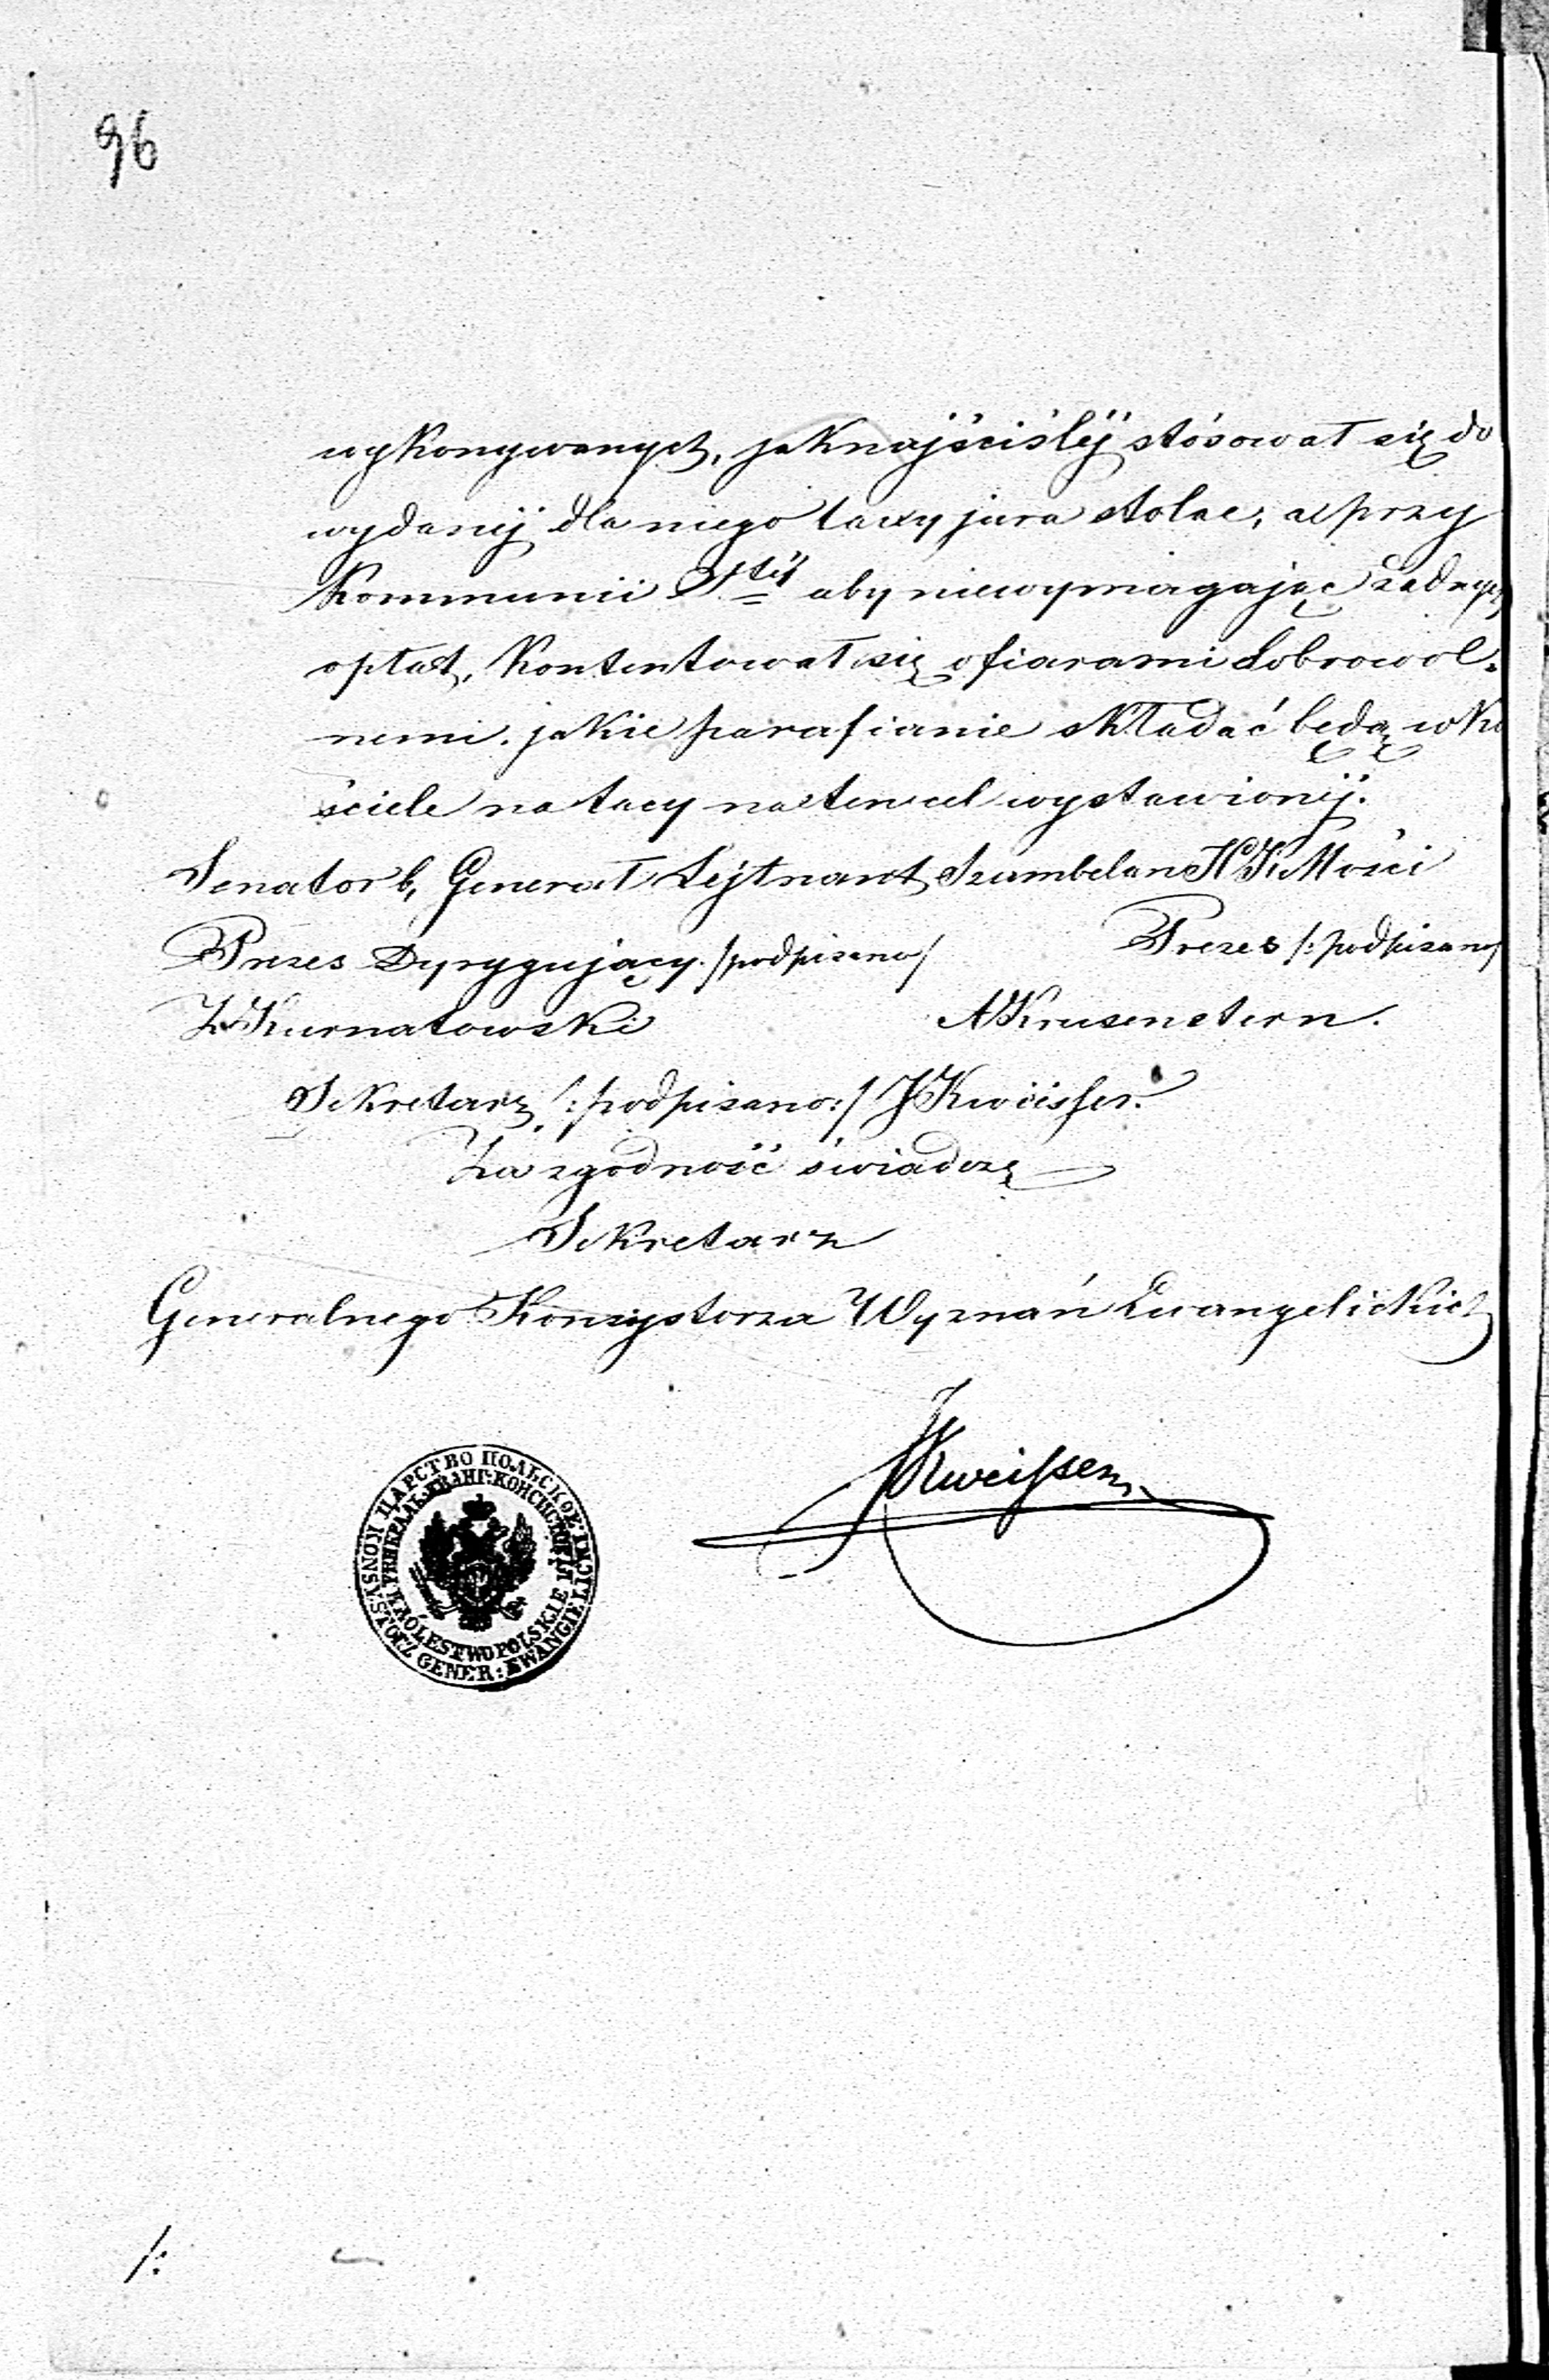 96
wykonywanych, jaknajściśléj stósował się do
wydanéj dla niego taxy jura stolae, a przy
Kommunii S<sup>téj</sup> aby niewymagając żadnych
opłat, Kontentował się ofiarami dobrowol-
nemi. jakie parafianie składać będą w Ko
ściele na tacy na ten cel wystawionéj.
Senator, Generał Lejtnant Szambelan JKMości
Prezes Dyrygujący. /podpisano/ Prezes /:podpisano/
Kurnatowski AKrusenstern.
Sekretarz /:podpisano:/ JKweisser.
Za zgodność świadczę
Sekretarz
Generalnego Konsystorza Wyznań Ewangelickich
JKweisser
ЦАРСТВО ПОЛЬСКОЕ
ГЕНЕРАЛ: ЕВАНГ: КОНСИСТОРІЯ
KRÓLESTWO POLSKIE
KONSYSTORZ GENER: EWANGIELICKI
/: